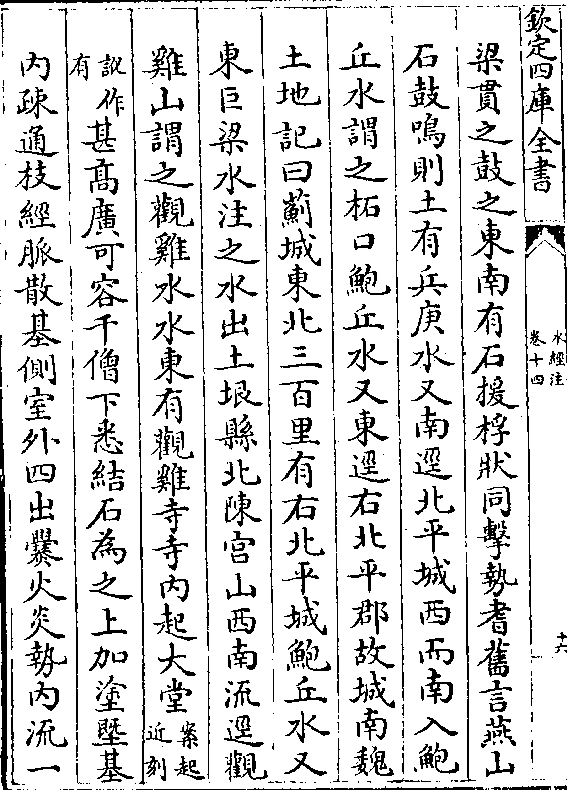 欽定四庫全書
水經注
卷十四
十六
梁貫之鼓之東南有石援桴狀同擊勢耆舊言燕山
石鼓鳴則土有兵庚水又南逕北平城西而南入鮑
丘水謂之柘口鮑丘水又東逕右北平郡故城南魏
土地記曰薊城東北三百里有右北平城鮑丘水又
東巨梁水注之水出土垠縣北陳宫山西南流逕觀
雞山謂之觀雞水水東有觀雞寺寺内起大堂案起近刻
訛作有甚高廣可容千僧下悉結石為之上加塗塈基
内疎通枝經脈散基側室外四出爨火炎勢内流一